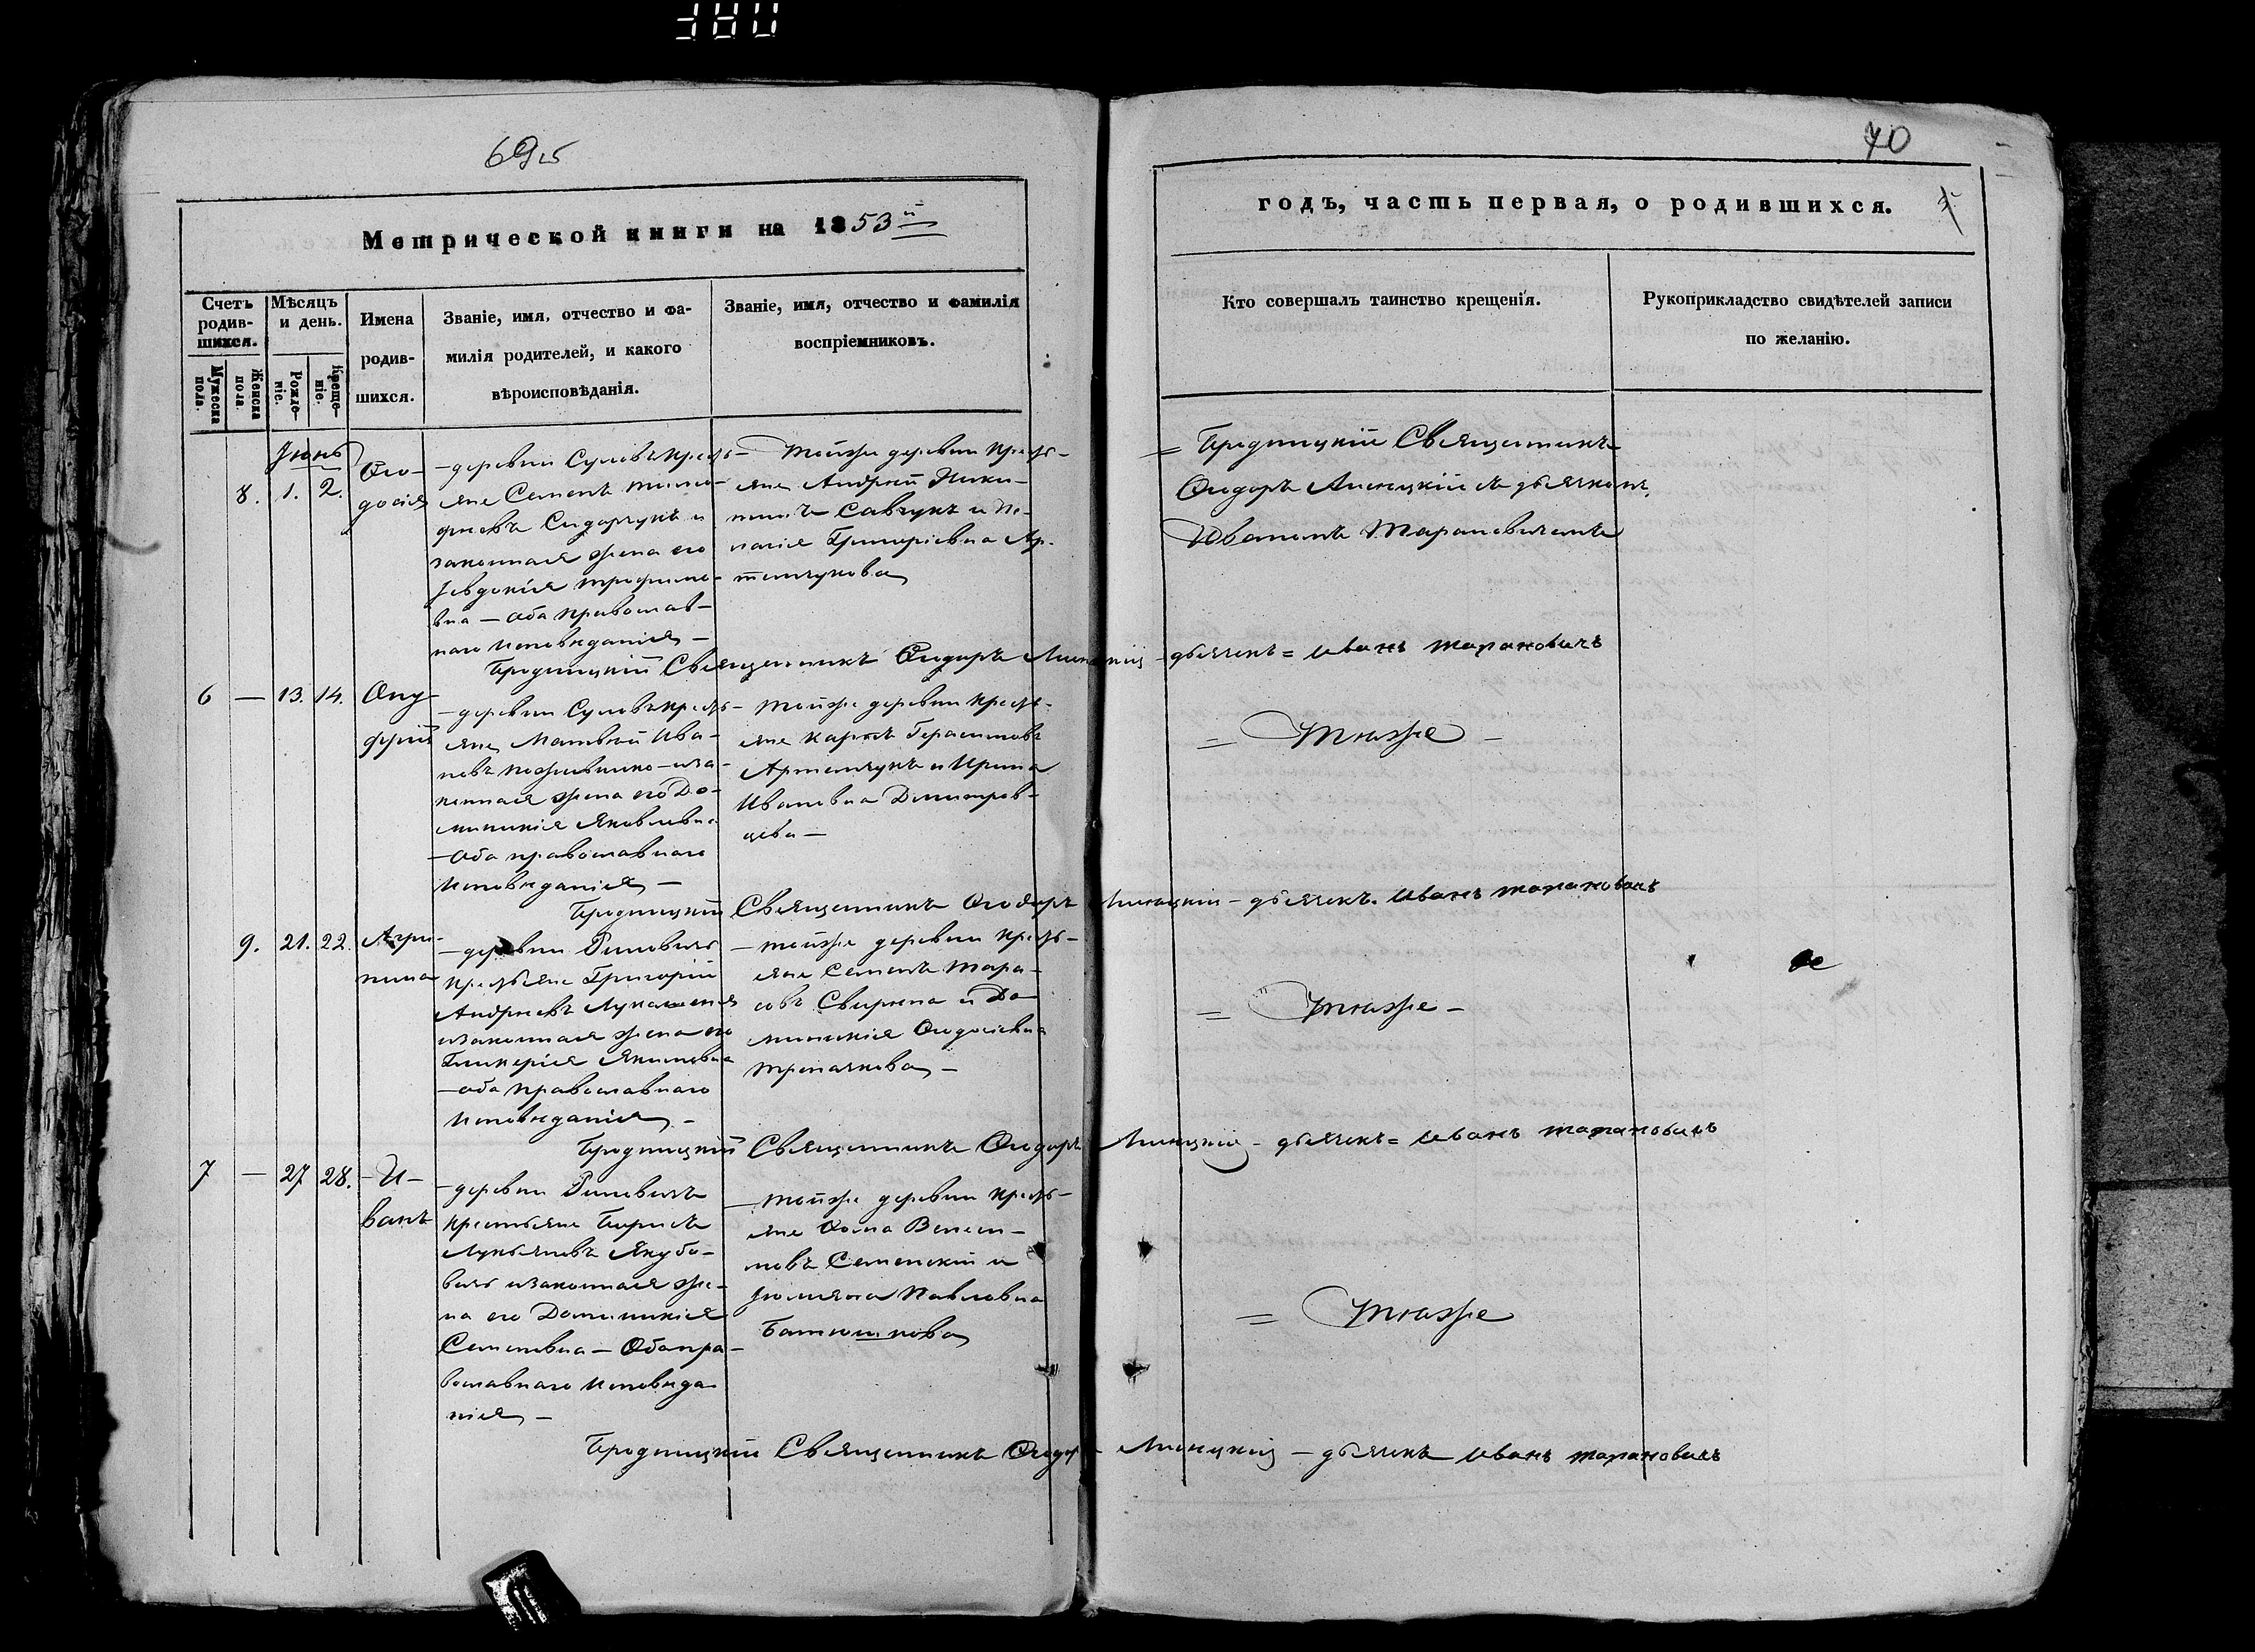 69об
70
Метрической книги на 1853й
годъ, часть первая, о родившихся.
Счетъ родив-шихся.
Мужеска пола.
Женска пола.
Мѣсяцъ и день.
Рожде-ніе.
Креще-ніе.
Имена
родив-
шихся.
Званіе, имя, отчество и фа-
милія родителей, и какого
вѣроисповѣданія.
Званіе, имя, отчество и фамилія
воспріемниковъ.
Кто совершалъ таинство крещенія.
Рукоприкладство свидѣтелей записи
по желанію.
Іюнь
8. 1. 2.
Ѳео-
досія
— деревни Суловъ кресть-
яне Семенъ Тимо-
фѣевъ Сидорчукъ и
законная жена его
Іевдокія Трофимо-
вна — оба православ-
наго исповѣданія —
— тойже деревни кресть-
яне Андрей Ники-
Савчукъ и Пе-
лагія Григоріевна Ар-
темчукова
= Бродницкій Священникъ
Ѳеодоръ съ дьячкомъ
Иваномъ Тарановичемъ
Бродницкій Священникъ Ѳеодоръ — дьячекъ = Иванъ Тарановичъ
6 — 13. 14.
Ону-
фрій
— деревни Суловъ кресть-
яне Матвѣй Ива-
новъ и за-
конная жена его До-
миникія Яковлевна
— оба православнаго
исповѣданія —
— тойже деревни кресть-
яне Карпъ Герасимовъ
Артемчукъ и Ирина
Ивановна
= Тѣже —
Бродницкій Священникъ Ѳеодоръ — дьячекъ Иванъ Тарановичъ
9. 21. 22.
Агри-
пина
— деревни
крестьяне Григорій
Андреевъ
и законная жена его
Гликерія Якимовна
— оба православнаго
исповѣданія —
— тойже деревни кресть-
яне Семенъ Тара-
совъ и До-
миникія Ѳеодосіевна
= Тѣже —
Бродницкій Священникъ Ѳеодоръ — дьячекъ = Иванъ Тарановичъ
7 — 27 28.
И-
ванъ
— деревни
крестьяне Борисъ
Лукьяновъ Якубо-
вичъ и законная же-
на его Доминикія
Семеновна — Оба пра-
вославнаго исповѣда-
нія —
— тойже деревни кресть-
яне Ѳома
и
Юліяна Павловна
Батюшкова
= Тѣже
Бродницкій Священникъ Ѳеодоръ — дьячекъ Иванъ Тарановичъ